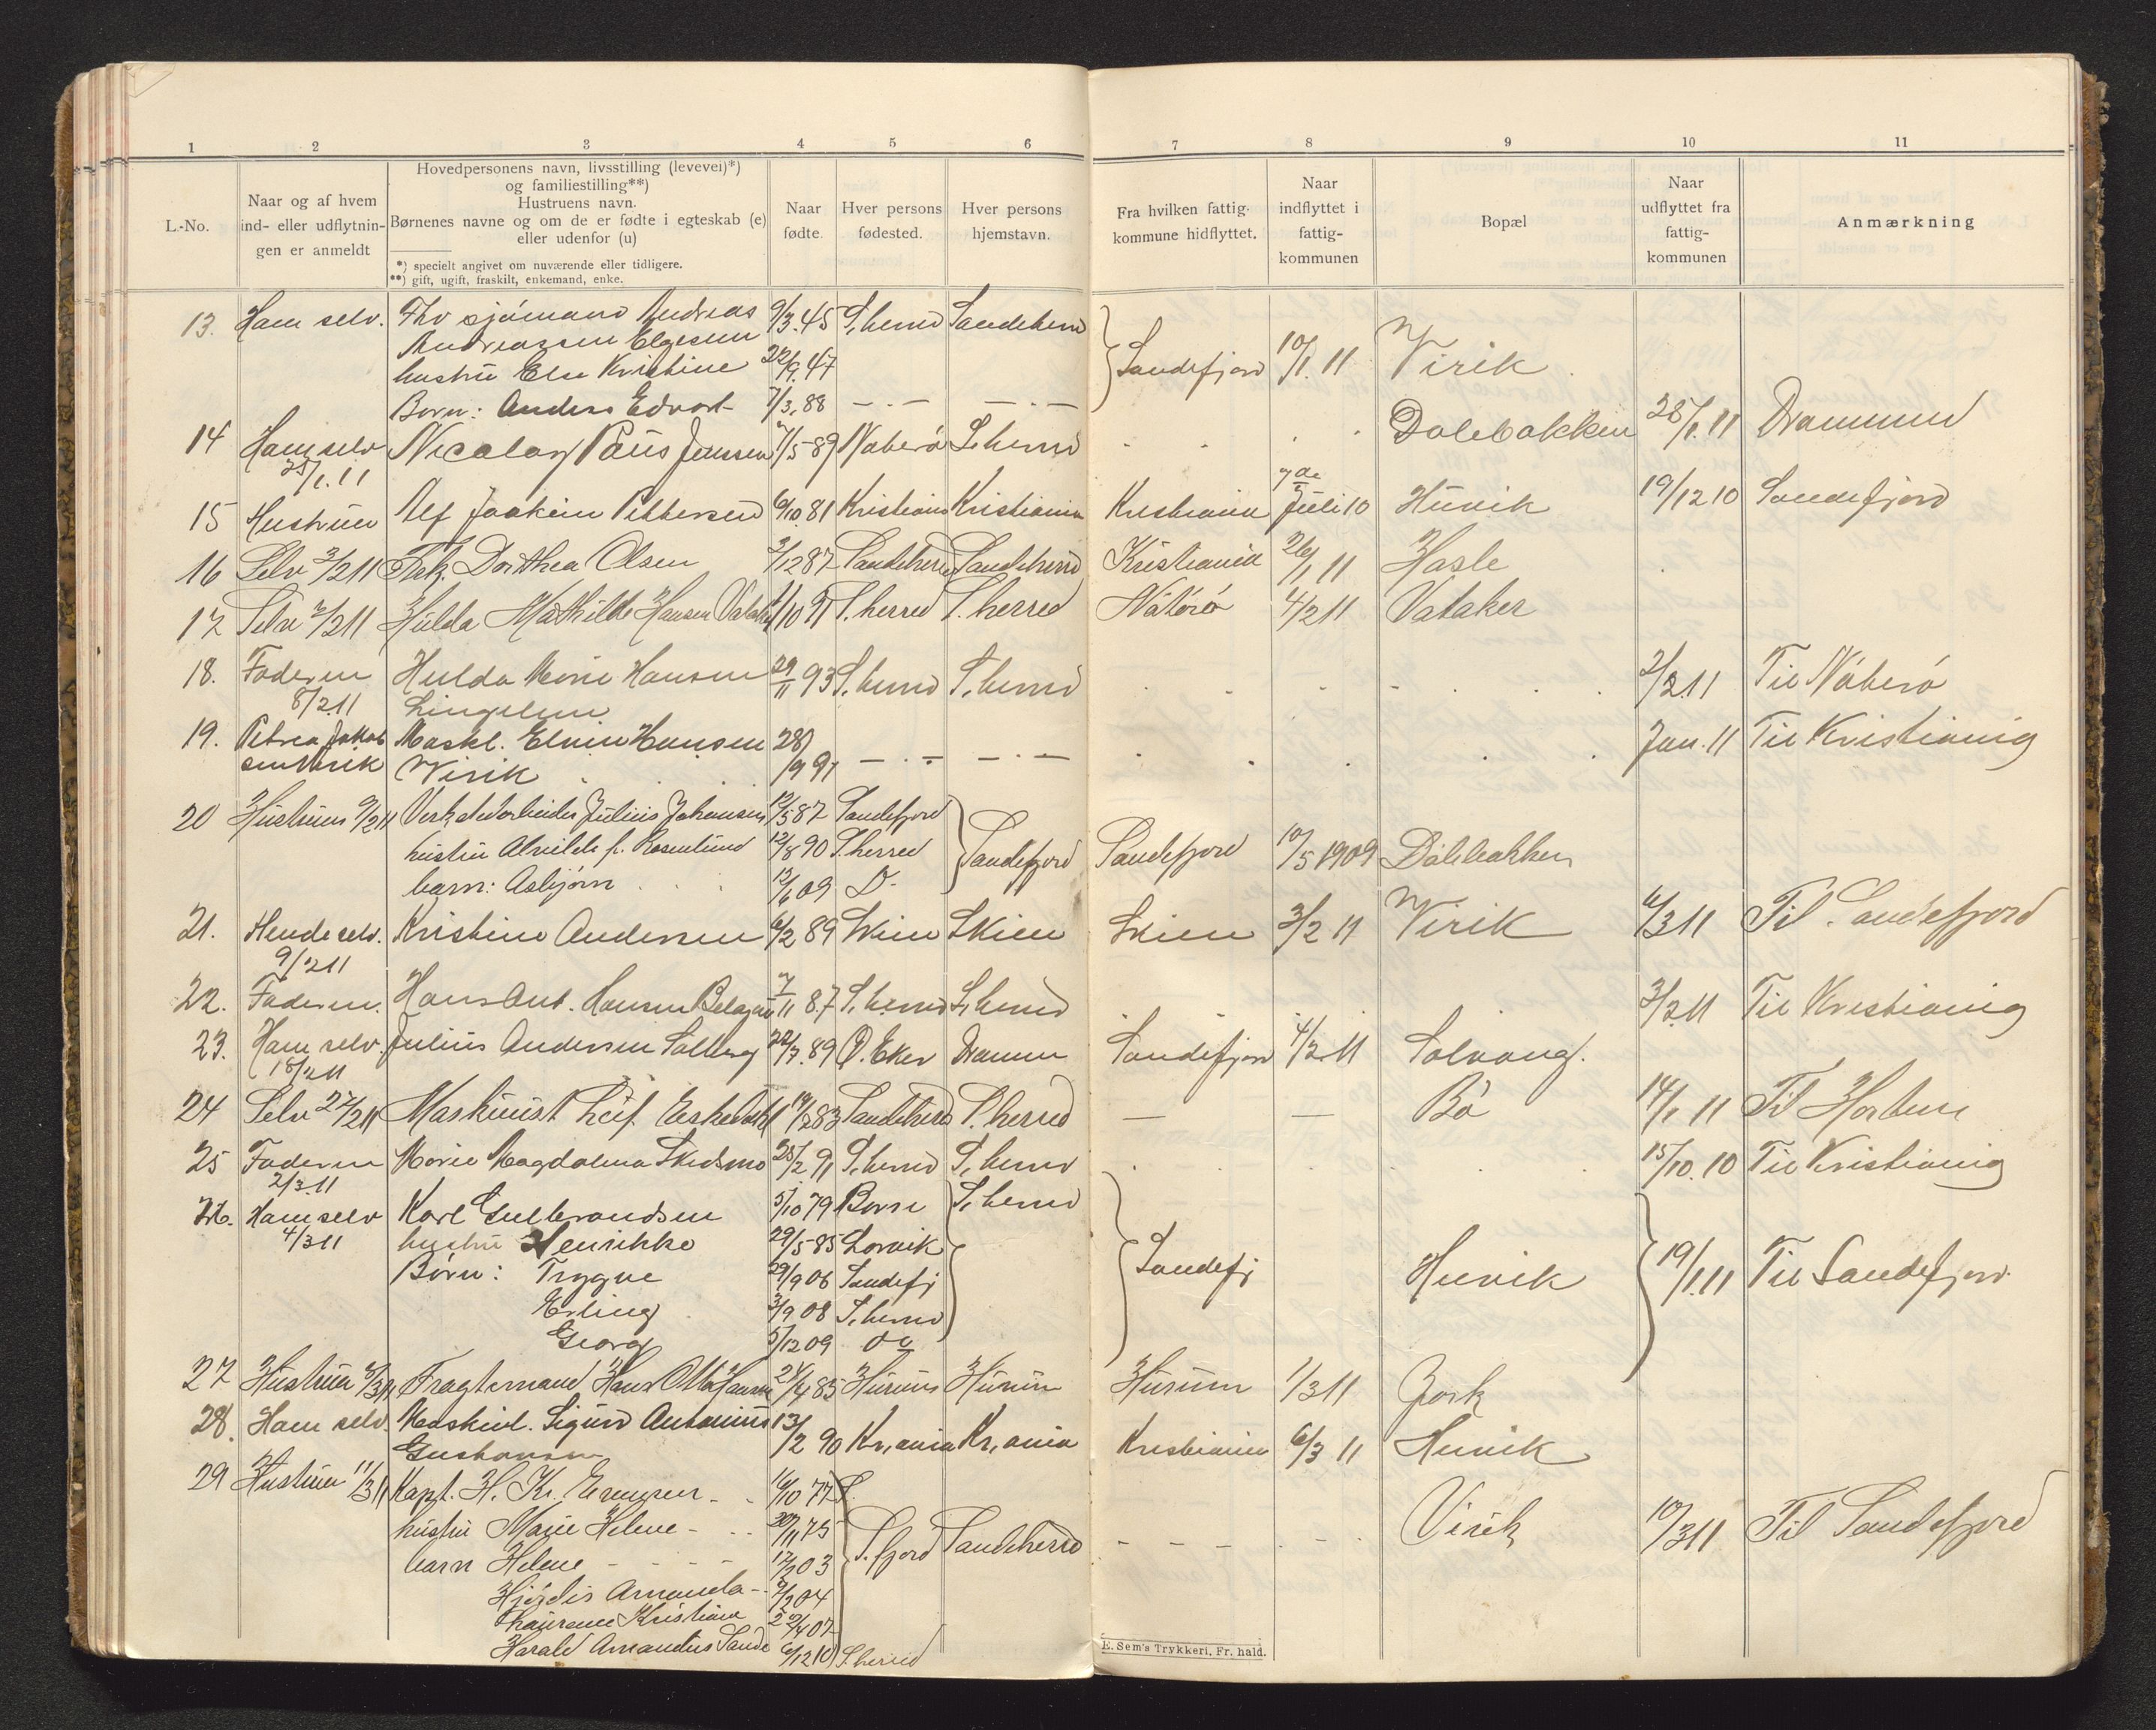 1 2 3 4 5 6 7 8 9 10 11
L.-No.
Naar og af hvem
ind- eller udflytnin-
gen er anmeldt
Hovedpersonens navn, livsstilling (levevei)*)
og familiestilling**)
Hustruens navn.
Børnenes navne og om de er fødte i egteskab (e)
eller udenfor (u)
*) specielt angivet om nuværende eller tidligere.
**) gift, ugift, fraskilt, enkemand, enke.
Naar
fødte.
Hver persons
fødested.
Hver persons
hjemstavn.
Fra hvilken fattig-
kommune hidflyttet.
Naar
indflyttet i
fattig-
kommunen
Bopæl
Naar
udflyttet fra
fattig-
kommunen
Anmærkning
13. Ham selv. Fhv sjømand Andreas 9/3.45 S,herred Sandeherred
Andreassen Elgesem
hustru Else Kristine 22/9.47 Sandefjord 10/1.11 Virik
Born: Anders Edvart 7/3,88 — . — — . —
14 Ham selv Nicolay Paus Jenssen 7/5 89 Nøterø S,herred Dolebakken 28/1.11 Drammen
25/1.11
15 Hustruen Alf Joakim Pettersen 6/10 81 Kristiania Kristiania Kristiania Juli 10 Hunik 19/12 10 Sandefjord
16 Selv 3/2 11 Frk. Dorthea Olsen 3/12 87 Sandeherred Sandeherred Kristiania 26/1 11 Hasle
17 Selv 7/2 11 Hulda Mathilde Hansen Vataker 1/10 91 S.herred S.herred Nøterø 4/2 11 Vataker
18. Faderen Hulda Marie Hansen 29/11 93 S,herred S,herred 2/2.11 Til Nøterø
8/2.11 Lingelem
19. Petrea Jakob Maskl. Elvin Hansen 28/9 91 — . — — . — Jan. 11 Til Kristiania
sen Virik Virik
20 Hustruen 9/2 11 Verkstedarbeider Julius Johansen 12/5 87 Sandefjord
hustru Alvilde f. Rosenlund 12/8 90 S.herred Sandefjord Sandefjord 10/5 1909 Dølebakken
barn: Asbjørn 12/6 09 D-
21. Hende selv. Kristine Andersen 6/2 89 Skien Skien Skien 3/2 11 Virik 6/3 11 Til Sandefjord
9/2 11
22. Faderen. Hans Ant. Hansen 7/11 87 S,herred S,herred 3/2.11 Til Kristiania
23. Ham selv. Julius Andersen Solberg 22/7.89 Ø. Eker Drammen Sandefjord 4/2.11 Solvang.
18/2 11
24 Selv 27/2 11 Maskinist Leif 19/12 83 Sandeherred S.herred — — Bø 14/1 11 Til Horten
25 Faderen Marie Magdalena Skedsmo 25/2.91 S,herred S,herred 15/10.10 Til Kristiania
2/3.11
26. Ham selv Karl Gulbrandsen 5/10 79 Borre S,herred
4/3 11 hustru Henrikke 29/5 85 Larvik
Børn: Trygve 29/9 06 Sandefj Sandefj Hunik 19/1.11 Til Sandefjord.
Erling 3/9 08 S,herred
Georg 5/12 09 do
27 Hustrua 8/3 11 Fragtemand Hans Otto Hansen 21/4 85 Hurum Hurum Hurum 1/3 11 Gork
28. Ham selv. Maskinl. Sigurd Antonius 13/2 90 Kr,ania Kr,ania Kristiania 6/3 11 Hunik
Gustavsen
29 Hustrua 11/3 11 Kapt. H. Kr. Evensen 16/10 77 S.
hustru Marie Helene 30/11 75 S.fjord Sandeherred Virik 10/3 11 Til Sandefjord
barn Helene 17/2 03
Hjørdis Amanda 9/2 04
Laurence Kristiane 22/4 07
Harald Amandus Sande 6/12 10 S.herred
E. Sem's Trykkeri, Fr. hald.